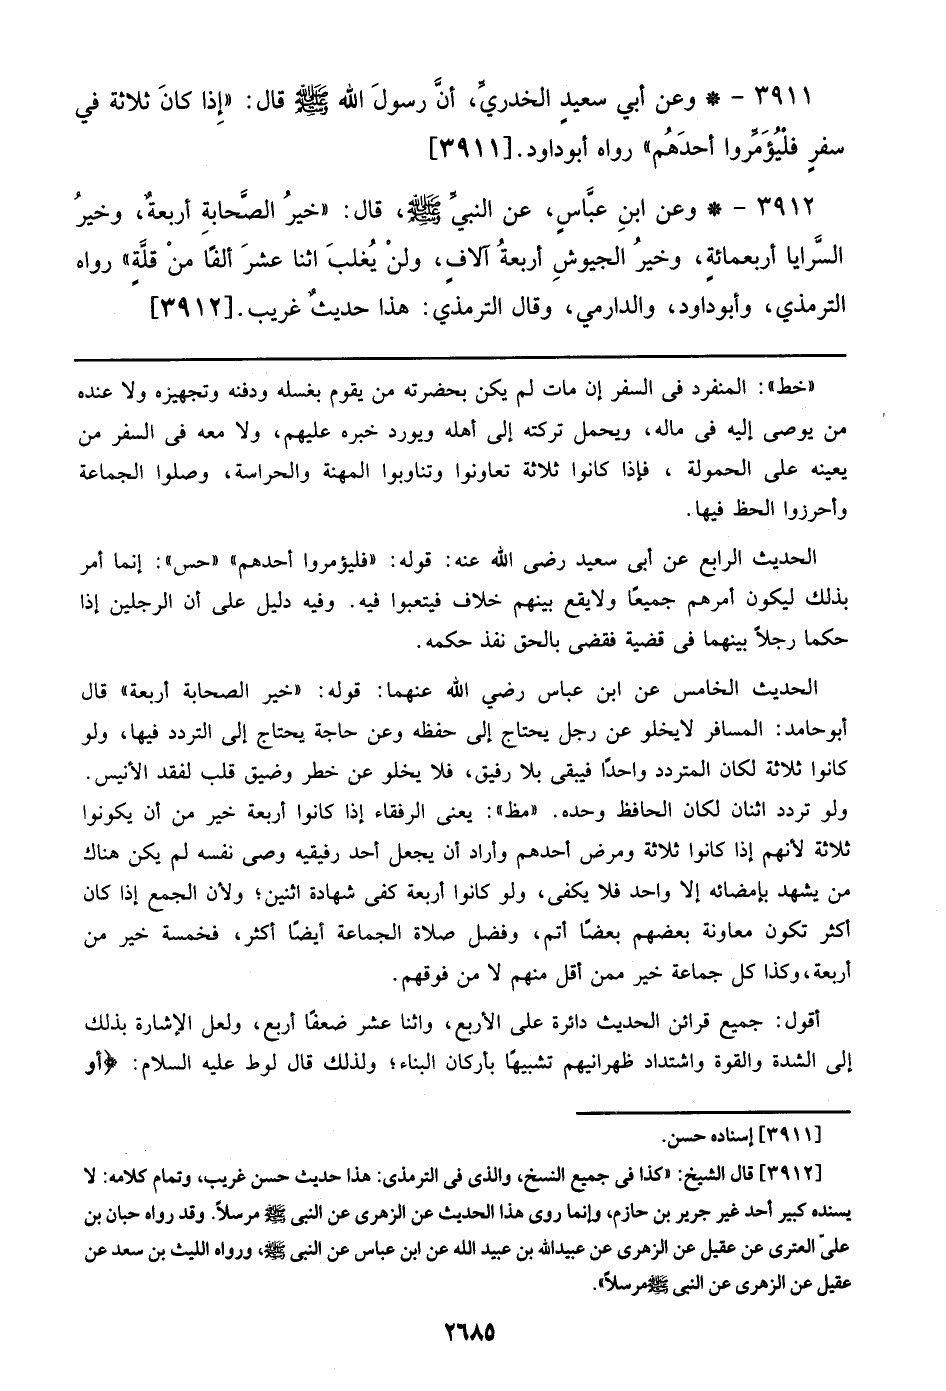 ٣٩١١ – * وعن أبي سعيدٍ الخدريِّ، أنَّ رسولَ الله ﷺ قال: «إِذا كانَ ثلاثة في
سفرٍ فلْيُؤَمِّروا أحدَهُم» رواه أبوداود. [٣٩١١]
٣٩١٢ – * وعن ابنِ عبَّاسٍ، عن النبيِّ ﷺ، قال: «خيرُ الصَّحابةِ أربعةٌ، وخيرُ
السَّرايا أربعمائةٍ، وخيرُ الجيوشِ أربعةُ آلافٍ، ولنْ يُغلبَ اثنا عشرَ ألفًا منْ قلَّةٍ» رواه
الترمذي، وأبوداود، والدارمي، وقال الترمذي: هذا حديثٌ غريب. [٣٩١٢]
«خط»: المنفرد فى السفر إن مات لم يكن بحضرته من يقوم بغسله ودفنه وتجهيزه ولا عنده
من يوصى إليه فى ماله، ويحمل تركته إلى أهله ويورد خبره عليهم، ولا معه فى السفر من
يعينه على الحمولة ، فإذا كانوا ثلاثة تعاونوا وتناوبوا المهنة والحراسة، وصلوا الجماعة
وأحرزوا الحظ فيها.
الحديث الرابع عن أبى سعيد رضى الله عنه: قوله: «فليؤمروا أحدهم» «حس»: إنما أمر
بذلك ليكون أمرهم جميعًا ولايقع بينهم خلاف فيتعبوا فيه. وفيه دليل على أن الرجلين إذا
حكما رجلاً بينهما فى قضية فقضى بالحق نفذ حكمه.
الحديث الخامس عن ابن عباس رضي الله عنهما: قوله: «خير الصحابة أربعة» قال
أبوحامد: المسافر لايخلو عن رجل يحتاج إلى حفظه وعن حاجة يحتاج إلى التردد فيها، ولو
كانوا ثلاثة لكان المتردد واحدًا فيبقى بلا رفيق، فلا يخلو عن خطر وضيق قلب لفقد الأنيس.
ولو تردد اثنان لكان الحافظ وحده. «مظ»: يعنى الرفقاء إذا كانوا أربعة خير من أن يكونوا
ثلاثة لأنهم إذا كانوا ثلاثة ومرض أحدهم وأراد أن يجعل أحد رفيقيه وصى نفسه لم يكن هناك
من يشهد بإمضائه إلا واحد فلا يكفى، ولو كانوا أربعة كفى شهادة اثنين؛ ولأن الجمع إذا كان
أكثر تكون معاونة بعضهم بعضًا أتم، وفضل صلاة الجماعة أيضًا أكثر، فخمسة خير من
أربعة،وكذا كل جماعة خير ممن أقل منهم لا من فوقهم.
أقول: جميع قرائن الحديث دائرة على الأربع، واثنا عشر ضعفًا أربع، ولعل الإشارة بذلك
إلى الشدة والقوة واشتداد ظهرانيهم تشبيهًا بأركان البناء؛ ولذلك قال لوط عليه السلام: ﴿أو
[٣٩١١] إسناده حسن.
[٣٩١٢] قال الشيخ: «كذا فى جميع النسخ، والذى فى الترمذى: هذا حديث حسن غريب، وتمام كلامه: لا
يسنده كبير أحد غير جرير بن حازم، وإنما روى هذا الحديث عن الزهرى عن النبى ﷺ مرسلاً. وقد رواه حبان بن
علىّ العترى عن عقيل عن الزهرى عن عبيدالله بن عبيد الله عن ابن عباس عن النبى ﷺ، ورواه الليث بن سعد عن
عقيل عن الزهرى عن النبى ﷺ مرسلاً».
٢٦٨٥